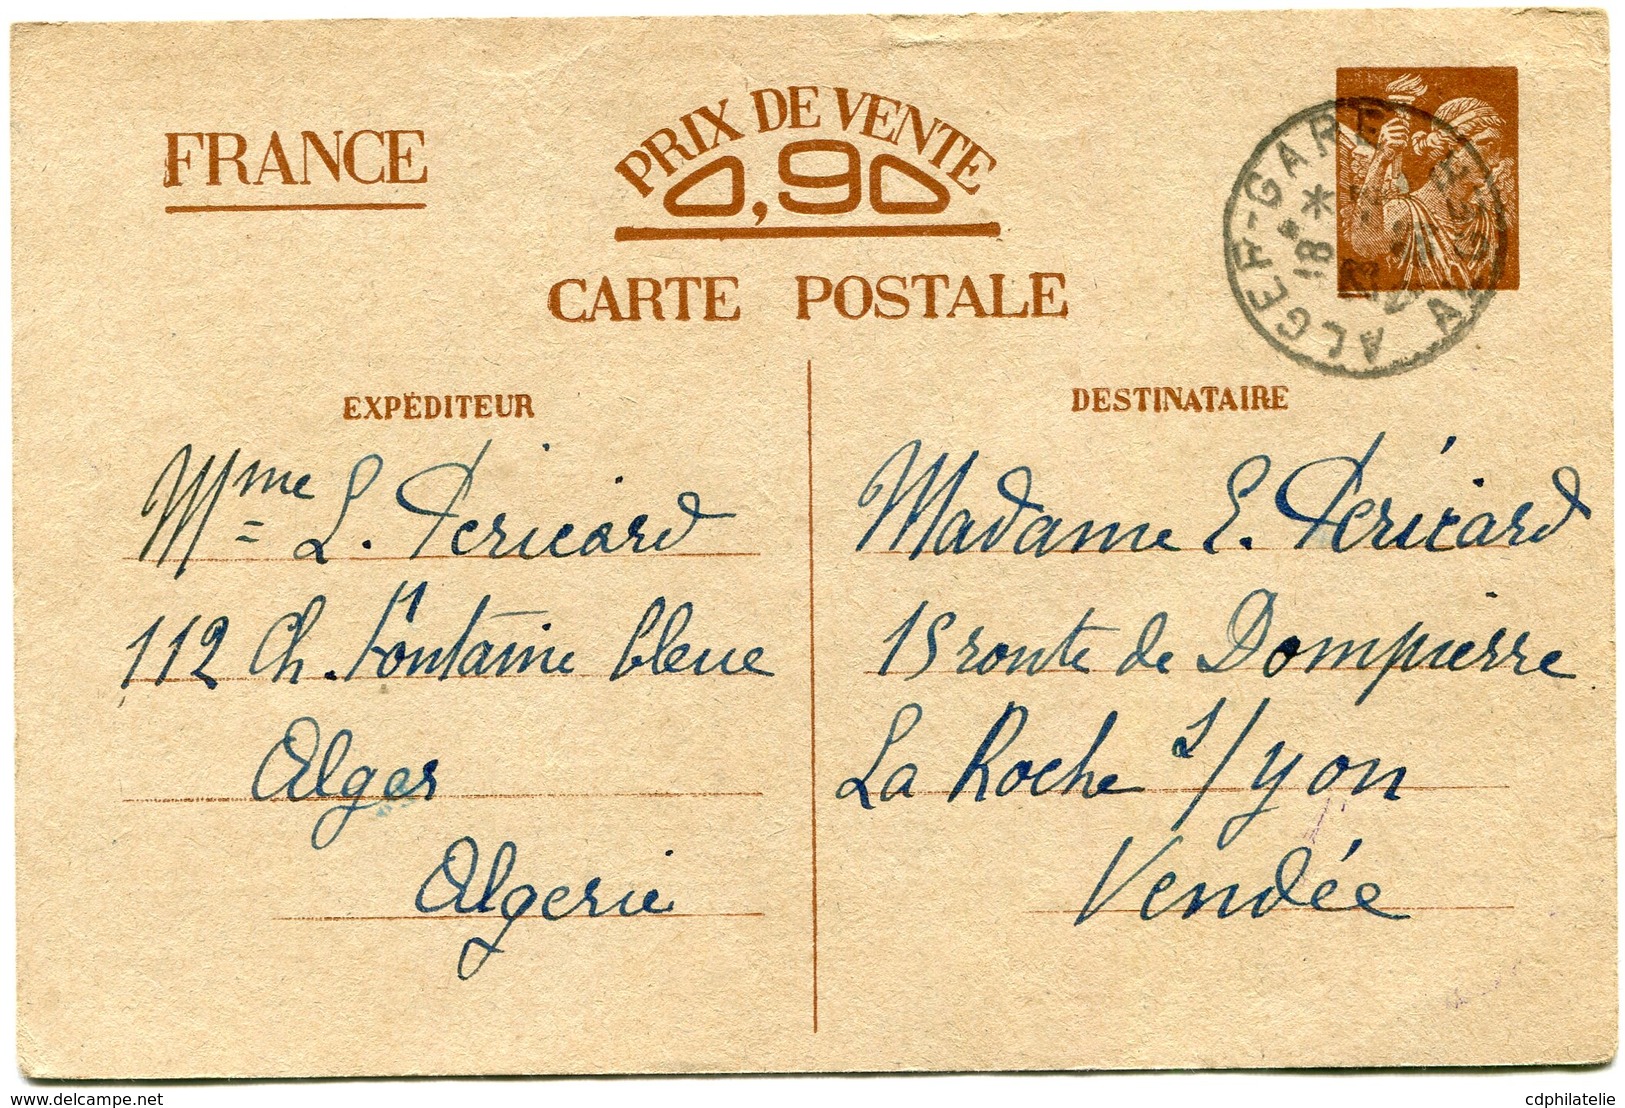 FRANCE
PRIX DE VENTE
0,90
CARTE POSTALE
ALGER-GARE
18
EXPÉDITEUR
Mme L. Pericard
112 Ch. Fontaine bleue
Alger
Algerie
DESTINATAIRE
Madame E. Péricard
15 route de Dompierre
La Roche s/yon
Vendée
delcampe.net
cdphilatelie